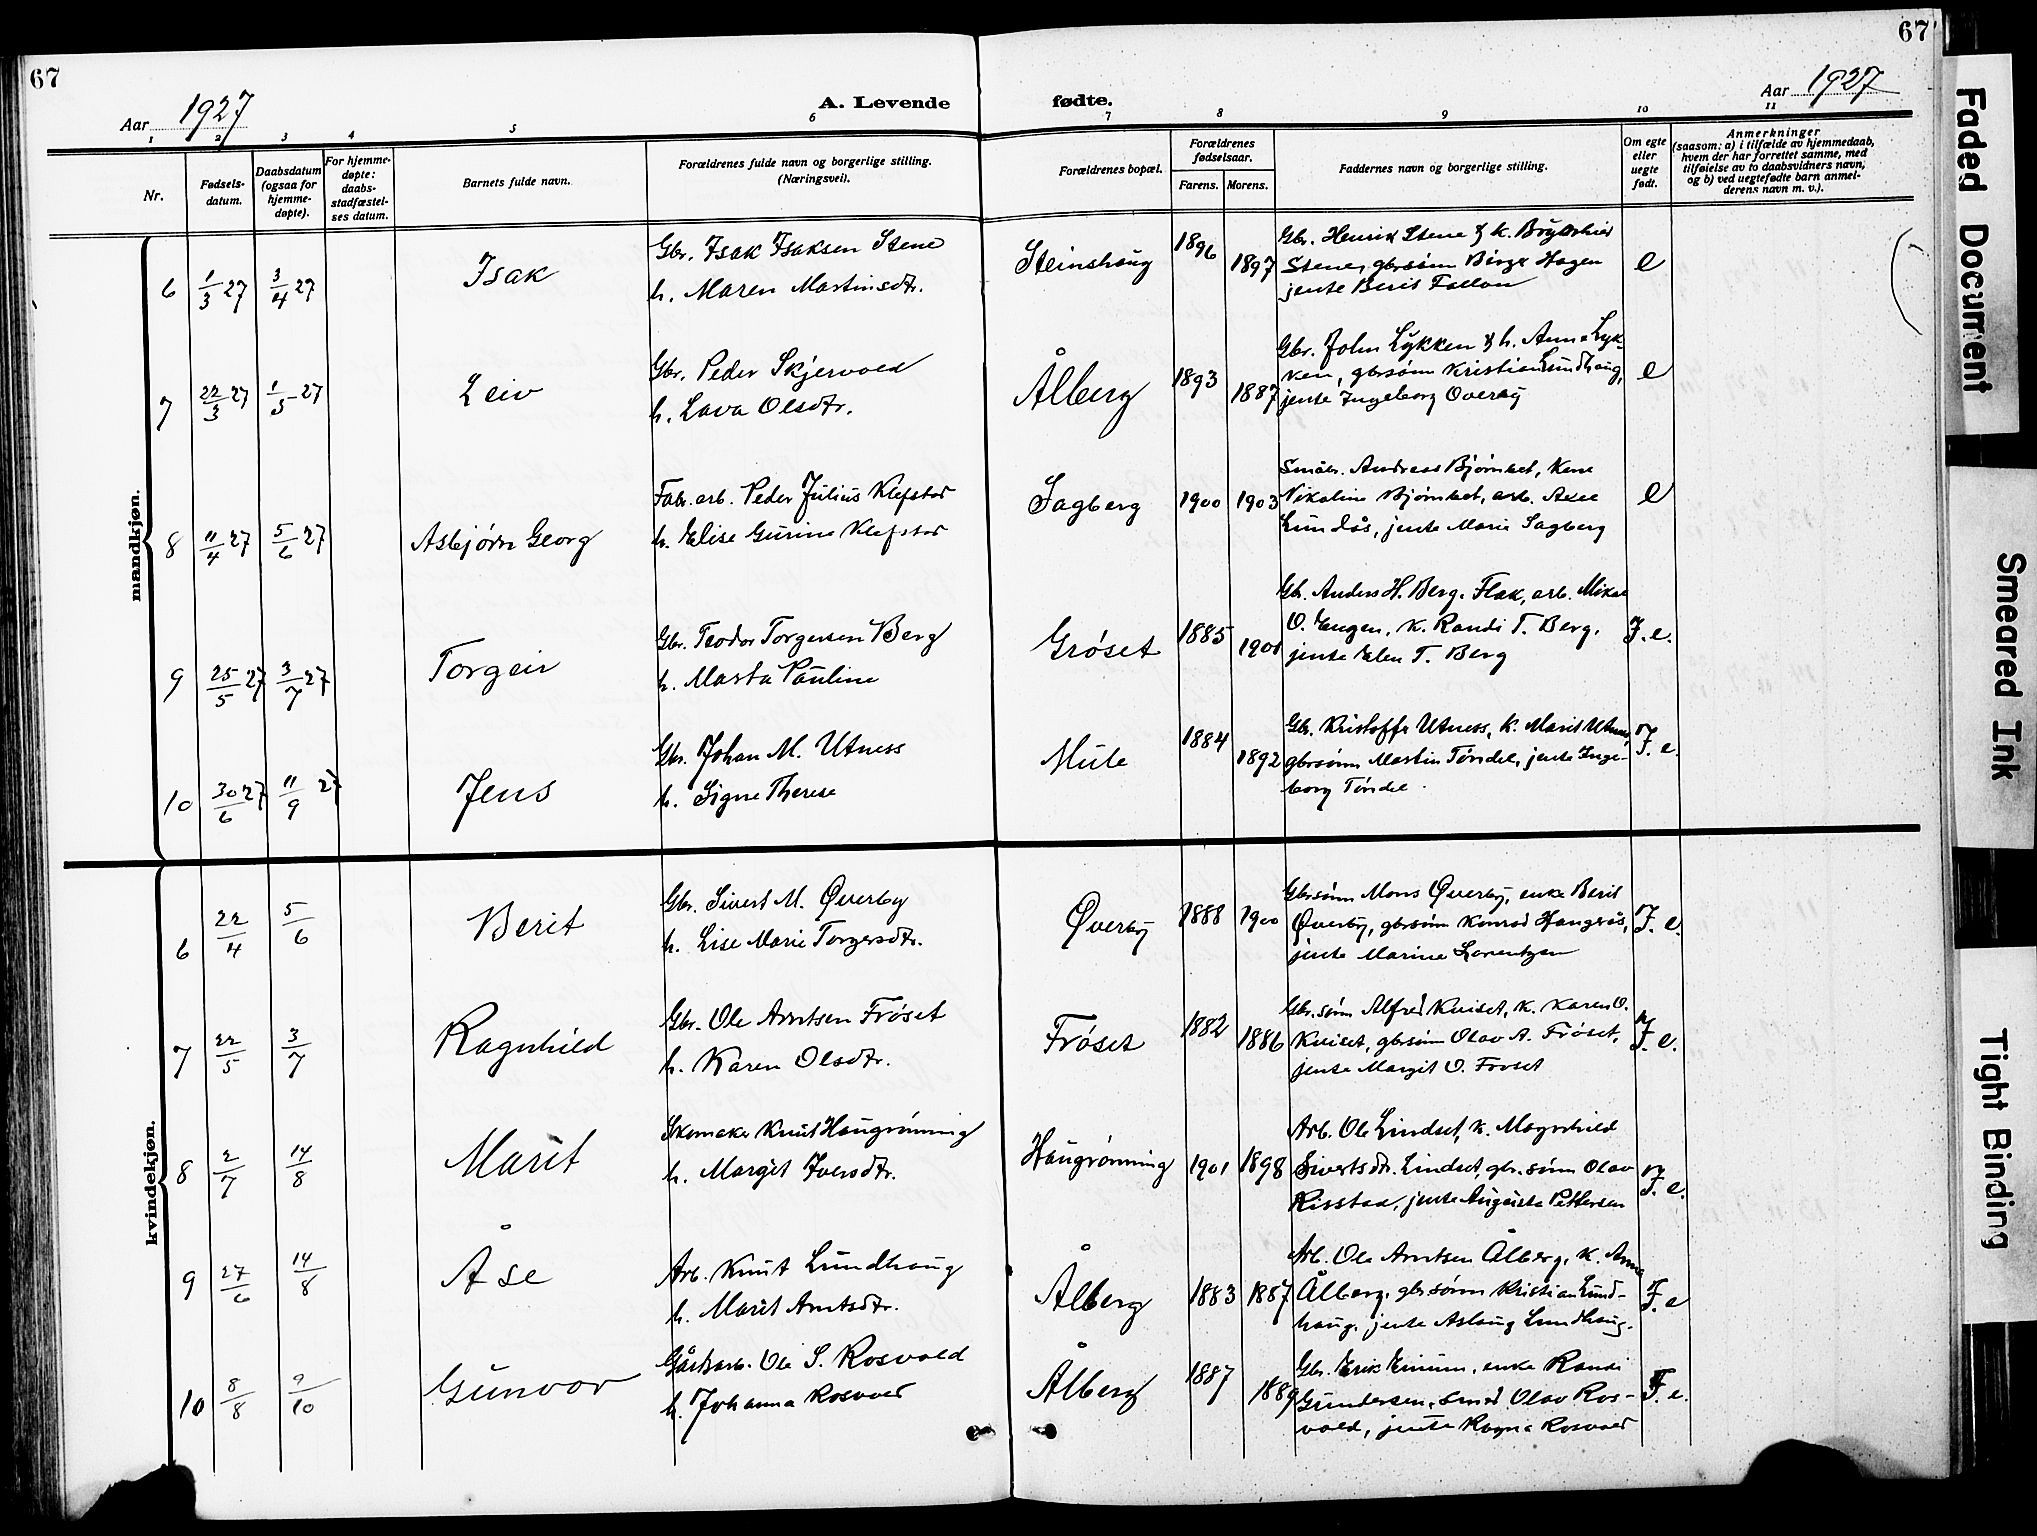 67
67
Aar 1927
A. Levende
fødte.
Aar 1927
1 2 3 4 5 6 7 8 9 10 11
Nr.
Fødsels-
datum.
Daabsdatum
(ogsaa for
hjemme-
døpte).
For hjemme-
døpte:
daabs-
stadfæstel-
ses datum.
Barnets fulde navn.
Forældrenes fulde navn og borgerlige stilling.
(Næringsvei).
Forældrenes bopæl.
Forældrenes
fødselsaar.
Farens. Morens.
Faddernes navn og borgerlige stilling.
Om egte
eller
uegte
født.
Anmerkninger
(saasom: a) i tilfælde av hjemmedaab,
hvem der har forrettet samme, med
tilføielse av to daabsvidners navn,
og b) ved uegtefødte barn anmel-
derens navn m. v.).
mandkjøn.
6 1/3 27 3/4 27 Isak
Gbr. Isak Isaksen Stene
h. Maren Martinsdtr.
Steinshaug 1896 1897
Gbr. Henrik Stene & k.
Stene, gbrsønn Birger Hagen
jente Berit
e
7 22/3 27 1/5 27 Leiv
Gbr. Peder Skjervold
h. Lava Olsdtr.
Ålberg 1893 1887
Gbr. John Lykken & h. Anna Lyk-
ken, gbrsønn Kristian Lundhaug,
jente Ingeborg Overby
e
8 11/4 27 5/6 27 Asbjørn Georg
Fabr. arb. Peder Julius Klefstad
h. Elise Gurine Klefstad
Sagberg 1900 1903
Småbr. Andreas Bjørnbet, Kone
Nikoline Bjørnbet, arb. Axel
Lundås, jente Marie Sagberg
e
9 25/5 27 3/7 27 Torgeir
Gbr. Teodor Torgersen Berg
h. Marta Pauline
Grøset 1885 1901
Gbr. Anders H. Berg. Flak, arb. Mikal
O. Engen, k. Randi T. Berg,
jente Elen T. Berg
F. e.
10 30/6 27 11/9 27 Jens
Gbr. Johan M. Utness
h. Signe Therese
Mule 1884 1892
Gbr. Kristoffer Utness, k. Marit Utness,
gbrsønn Martin Tøndel, jente Inge-
borg Tøndel.
F. e.
kvindekjøn.
6 22/4 5/6 Berit
Gbr. Sivert M. Øverby
h. Lise Marie Torgersdtr.
Øverby 1888 1900
Gbrsønn Mons Øverby, enke Berit
Øverby, gbrsønn Konrad Haugrås,
jente Marine Lorentzen
F. e.
7 22/5 3/7 Ragnhild
Gbr. Ole Arntsen Frøset
h. Karen Olsdtr.
Frøset 1882 1886
Gbr. sønn Alfred Kviset, k. Karen O.
Kviset, gbrsønn Olav A. Frøset,
jente Margit O. Frøset
F. e.
8 2/7 14/8 Marit
Skomaker Knut Haugrønning
h. Margit Iversdtr.
Haugrønning 1901 1898
Arb. Ole Lindset, k. Magnhild
Sivertsdtr. Lindset, gbr. sønn Olav
Risstad, jente Augusta Pettersen
F. e.
9 27/6 14/8 Åse
Arb. Knut Lundhaug
h. Marit Arntsdtr.
Ålberg 1883 1887
Arb. Ole Arntsen Ålberg, k. Anna
Ålberg, gbrsønn Kristian Lund-
haug, jente Aslaug Lundhaug.
F. e
10 8/8 9/10 Gunvor
Gårdsarb. Ole S. Rosvold
h. Johanna Rosvold
Ålberg 1887 1889
Gbr. Erik Einum, enke Randi
Gundersen, smed Olav Ros-
vold, jente Ragna Rosvold
F. e.
Faded Document
Smeared Ink
Tight Binding